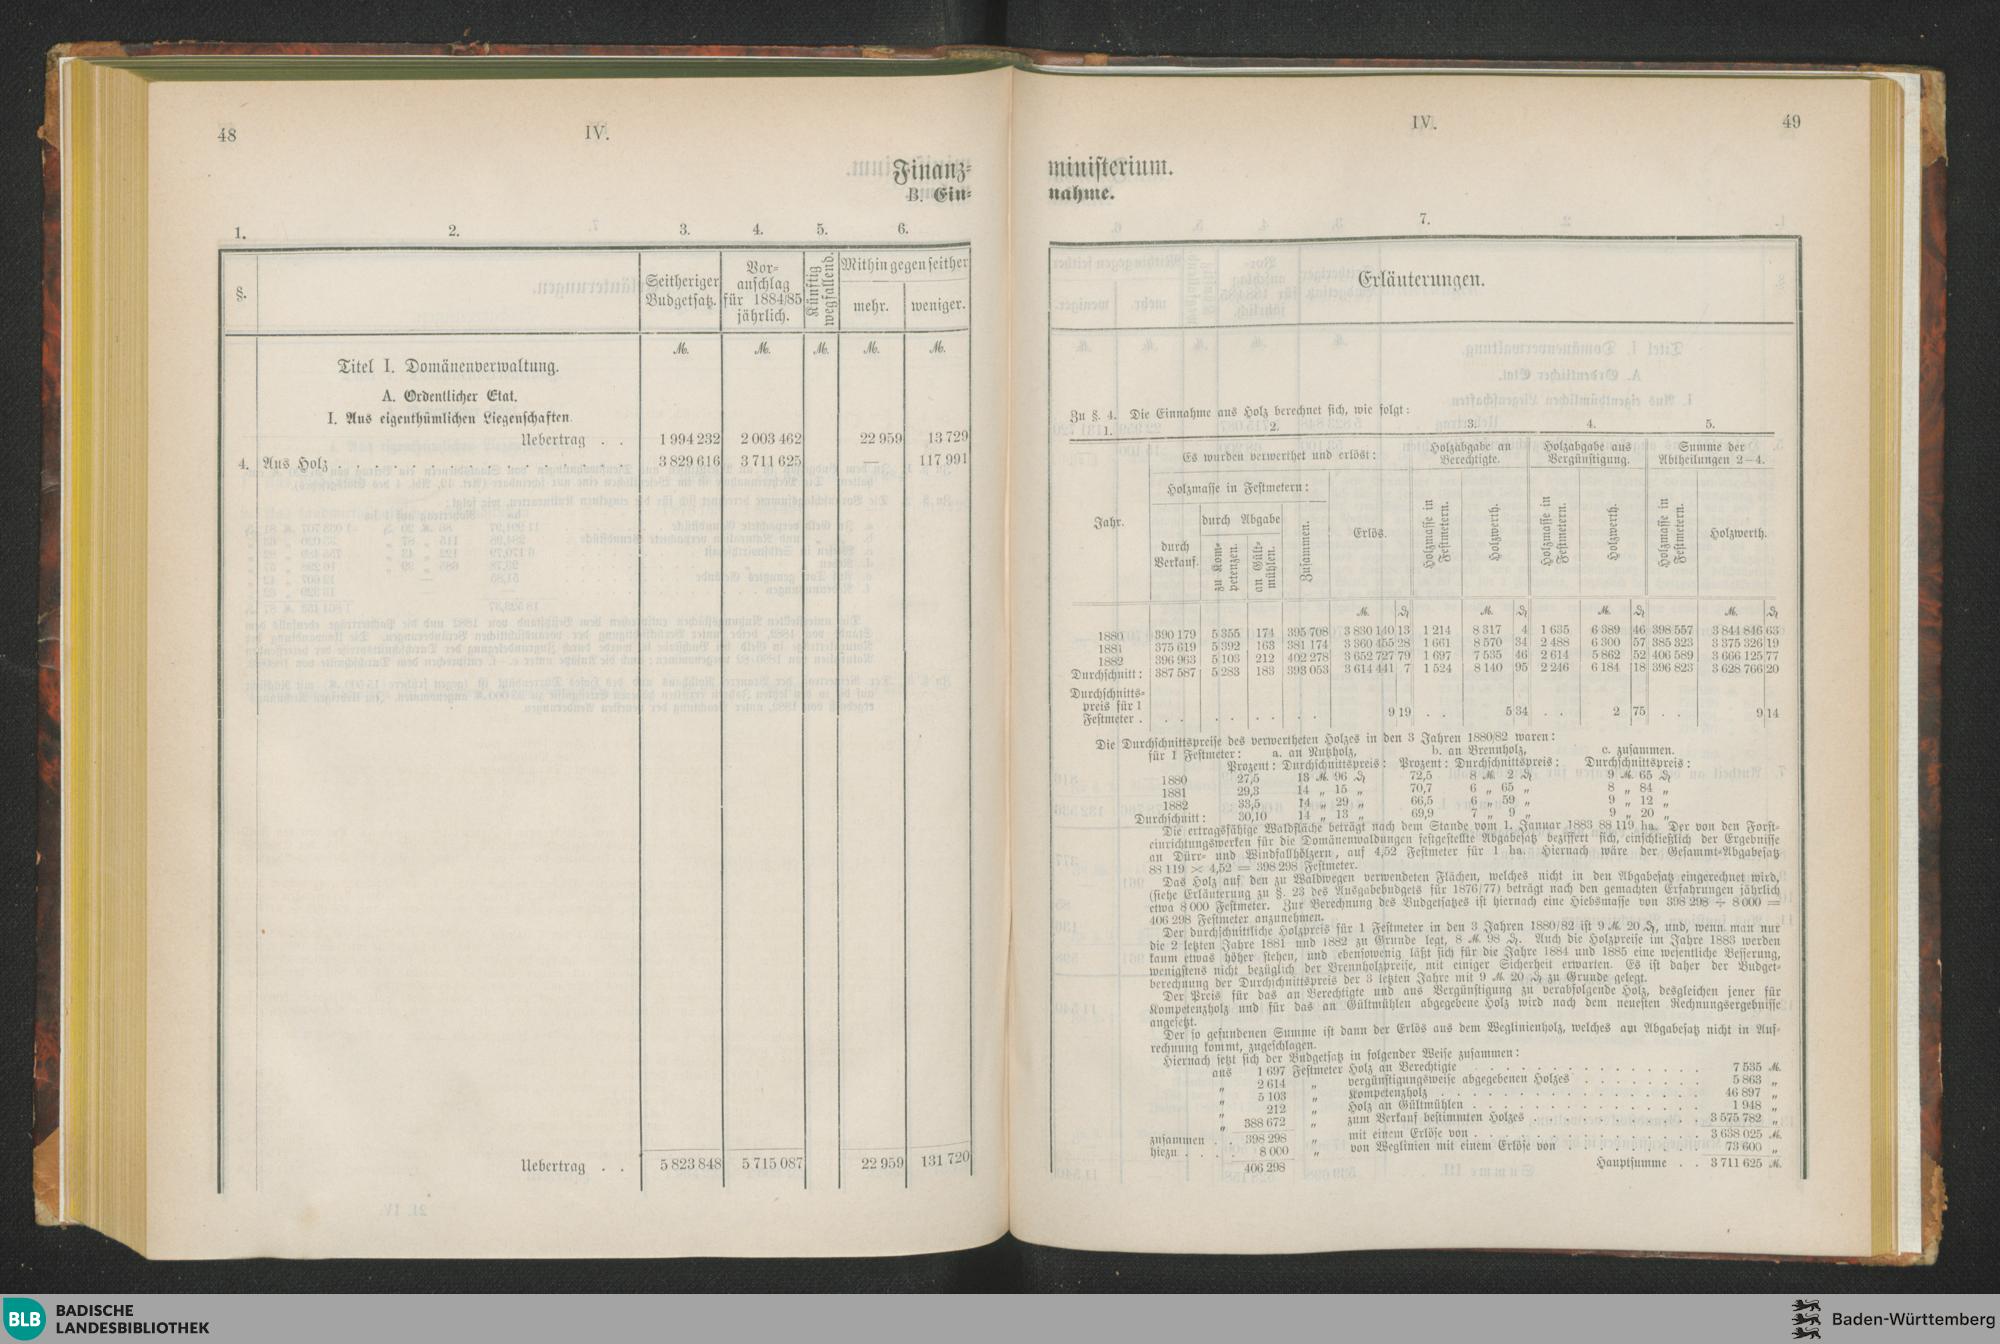 48
IV.
Finanz-
B. Ein-
1. 2. 3. 4. 5. 6.
§. Seitheriger Budgetsatz. Vor-anschlag für 1884/85 jährlich. Künftig wegfallend. Mithin gegen seither mehr. weniger.
ℳ. ℳ. ℳ. ℳ. ℳ.
Titel I. Domänenverwaltung.
A. Ordentlicher Etat.
I. Aus eigenthümlichen Liegenschaften.
Uebertrag . . 1 994 232 2 003 462 22 959 13 729
4. Aus Holz . . . 3 829 616 3 711 625 — 117 991
Uebertrag . . 5 823 848 5 715 087 22 959 131 720
IV.
49
ministerium.
nahme.
7.
Erläuterungen.
Zu §. 4. Die Einnahme aus Holz berechnet sich, wie folgt:
1. 2. 3. 4. 5.
Jahr. Es wurden verwerthet und erlöst: Holzabgabe an Berechtigte. Holzabgabe aus Vergünstigung. Summe der Abtheilungen 2—4.
Holzmasse in Festmetern: Erlös. Holzmasse in Festmetern. Holzwerth. Holzmasse in Festmetern. Holzwerth. Holzmasse in Festmetern. Holzwerth.
durch Verkauf. durch Abgabe zu Kompetenzen. an Gültmühlen. Zusammen.
ℳ. ₰ ℳ. ₰ ℳ. ₰ ℳ. ₰
1880 390 179 5 355 174 395 708 3 830 140 13 1 214 8 317 4 1 635 6 389 46 398 557 3 844 846 63
1881 375 619 5 392 163 381 174 3 360 455 28 1 661 8 570 34 2 488 6 300 57 385 323 3 375 326 19
1882 396 963 5 103 212 402 278 3 652 727 79 1 697 7 535 46 2 614 5 862 52 406 589 3 666 125 77
Durchschnitt: 387 587 5 283 183 393 053 3 614 441 7 1 524 8 140 95 2 246 6 184 18 396 823 3 628 766 20
Durchschnitts-
preis für 1
Festmeter . . . . . . . . . 9 19 . . 5 34 . . 2 75 . . 9 14
Die Durchschnittspreise des verwertheten Holzes in den 3 Jahren 1880/82 waren:
für 1 Festmeter: a. an Nutzholz, b. an Brennholz, c. zusammen.
Prozent: Durchschnittspreis: Prozent: Durchschnittspreis: Durchschnittspreis:
1880 27,5 13 ℳ. 96 ₰ 72,5 8 ℳ. 2 ₰ 9 ℳ. 65 ₰
1881 29,3 14 „ 15 „ 70,7 6 „ 65 „ 8 „ 84 „
1882 33,5 14 „ 29 „ 66,5 6 „ 59 „ 9 „ 12 „
Durchschnitt: 30,10 14 „ 13 „ 69,9 7 „ 9 „ 9 „ 20 „
Die ertragsfähige Waldfläche beträgt nach dem Stande vom 1. Januar 1883 88 119 ha. Der von den Forst-
einrichtungswerken für die Domänenwaldungen festgestellte Abgabesatz beziffert sich, einschließlich der Ergebnisse
an Dürr- und Windfallhölzern, auf 4,52 Festmeter für 1 ha. Hiernach wäre der Gesammt-Abgabesatz
88 119 × 4,52 = 398 298 Festmeter.
Das Holz auf den zu Waldwegen verwendeten Flächen, welches nicht in den Abgabesatz eingerechnet wird,
(siehe Erläuterung zu §. 23 des Ausgabebudgets für 1876/77) beträgt nach den gemachten Erfahrungen jährlich
etwa 8 000 Festmeter. Zur Berechnung des Budgetsatzes ist hiernach eine Hiebsmasse von 398 298 + 8 000 =
406 298 Festmeter anzunehmen.
Der durchschnittliche Holzpreis für 1 Festmeter in den 3 Jahren 1880/82 ist 9 ℳ. 20 ₰, und, wenn man nur
die 2 letzten Jahre 1881 und 1882 zu Grunde legt, 8 ℳ. 98 ₰. Auch die Holzpreise im Jahre 1883 werden
kaum etwas höher stehen, und ebensowenig läßt sich für die Jahre 1884 und 1885 eine wesentliche Besserung,
wenigstens nicht bezüglich der Brennholzpreise, mit einiger Sicherheit erwarten. Es ist daher der Budget-
berechnung der Durchschnittspreis der 3 letzten Jahre mit 9 ℳ. 20 ₰ zu Grunde gelegt.
Der Preis für das an Berechtigte und aus Vergünstigung zu verabfolgende Holz, desgleichen jener für
Kompetenzholz und für das an Gültmühlen abgegebene Holz wird nach dem neuesten Rechnungsergebnisse
angesetzt.
Der so gefundenen Summe ist dann der Erlös aus dem Weglinienholz, welches am Abgabesatz nicht in Auf-
rechnung kommt, zugeschlagen.
Hiernach setzt sich der Budgetsatz in folgender Weise zusammen:
aus 1 697 Festmeter Holz an Berechtigte . . . 7 535 ℳ.
„ 2 614 „ vergünstigungsweise abgegebenen Holzes . . . 5 863 „
„ 5 103 „ Kompetenzholz . . . 46 897 „
„ 212 „ Holz an Gültmühlen . . . 1 948 „
„ 388 672 „ zum Verkauf bestimmten Holzes . . . 3 575 782 „
zusammen . . 398 298 „ mit einem Erlöse von . . . 3 638 025 ℳ.
hiezu . . . . 8 000 „ von Weglinien mit einem Erlöse von . . . 73 600 „
406 298 Hauptsumme . . 3 711 625 ℳ.
BLB BADISCHE
LANDESBIBLIOTHEK
Baden-Württemberg